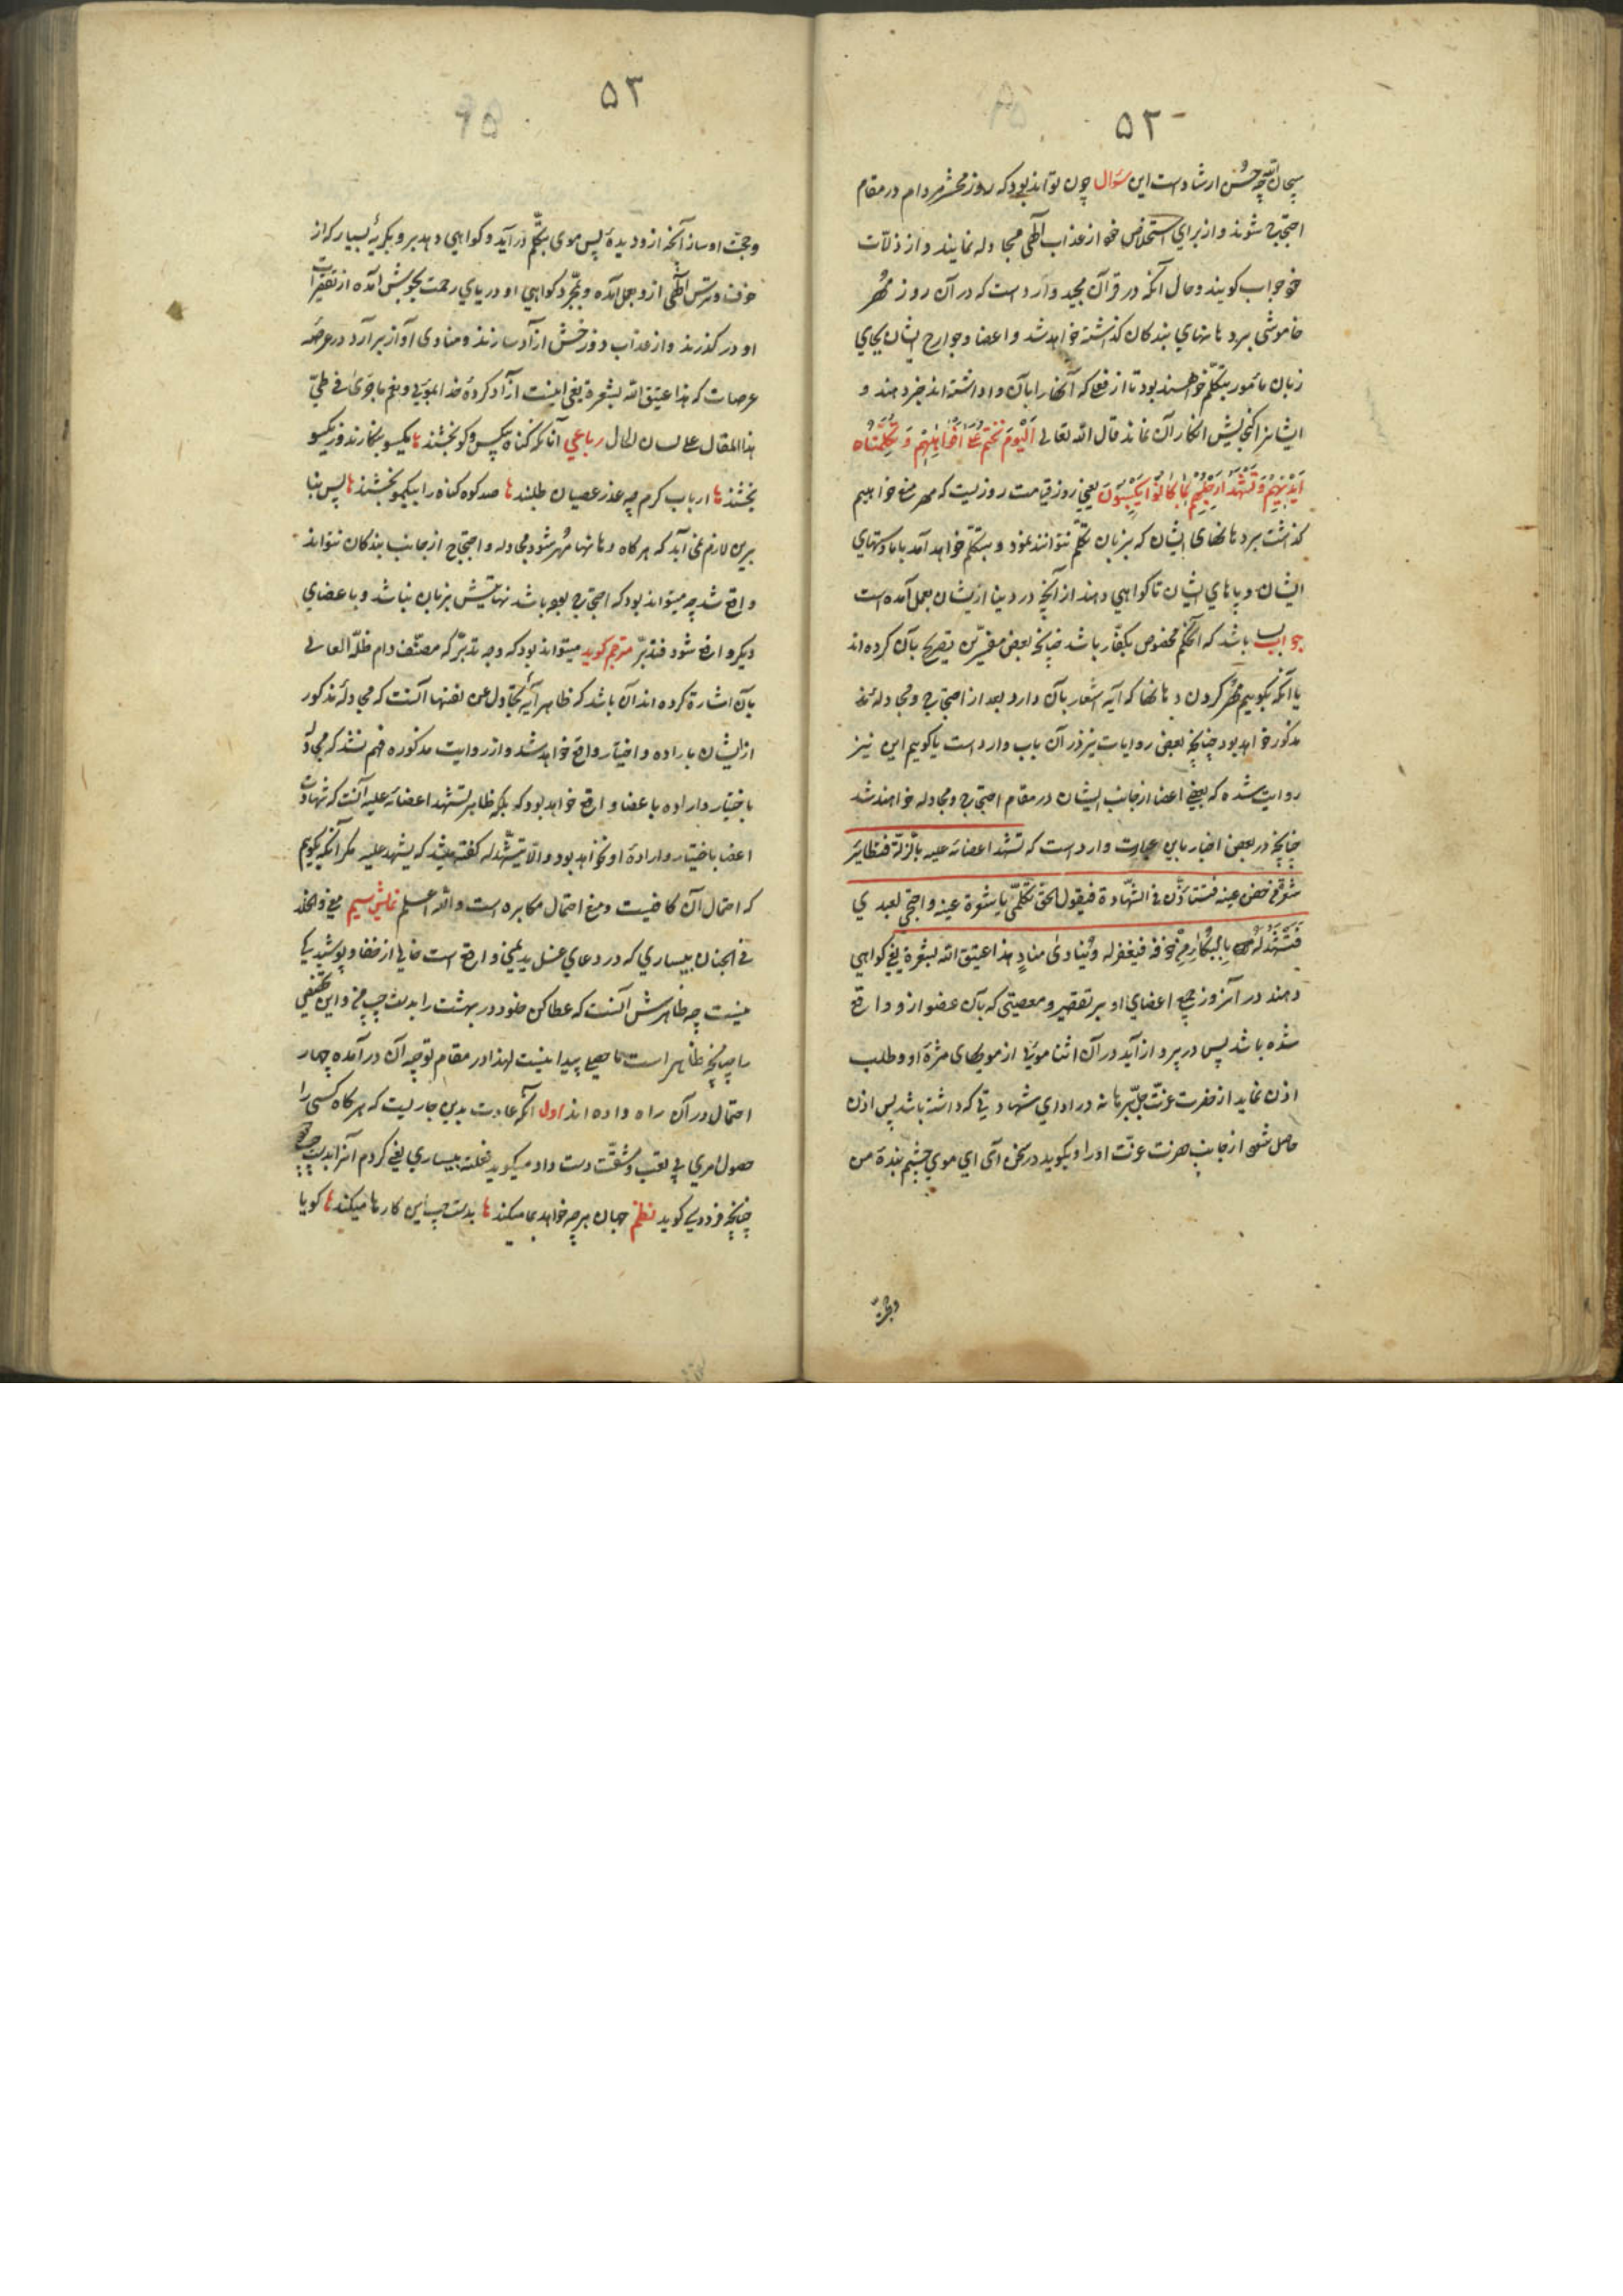 ۵۲
سبحان الله چه حسن ارشادست این سؤال چون تواند بود که روز محشر مردم در مقام
احتجاج شوند و از برای استخلاص خود از عذاب الهی مجادله نمایند و از زلّات
خود جواب گویند و حال آنکه در قرآن مجید وارد است که در آن روز مُهر
خاموشی بر دهانهای بندگان گذاشته خواهد شد و اعضا و جوارح ایشان بجای
زبان مأمور بتکلّم خواهند بود تا از فعلی که آنها را بآن واداشته‌اند خبر دهند و
ایشانرا گنجایش انکار آن نماند قال الله تعالی اَلْیَوْمَ نَخْتِمُ عَلیٰ اَفْوَاهِهِمْ وَ تُکَلِّمُنَاه
اَیْدِیهِمْ وَ تَشْهَدُ اَرْجُلُهُمْ بِمَا کَانُوا یَکْسِبُونَ یعنی روز قیامت روزیست که مهر منع خواهیم
گذاشت بر دهانهای ایشان که بزبان تکلّم نتوانند نمود و بتکلّم خواهد آمد با ما دستهای
ایشان و پاهای ایشان تا گواهی دهند از آنچه در دنیا از ایشان بعمل آمده است
جواب باشد که این حکم مخصوص بکفّار باشد چنانچه بعضی مفسّرین تصریح بآن کرده‌اند
یا آنکه بگوییم مُهر کردن دهانها که آیه اشعار بآن دارد بعد از احتجاج و مجادلهٔ
مذکور خواهد بود چنانچه بعضی روایات نیز در آن باب وارد است یا گوییم این نیز
روایت شده که بعضی اعضا از جانب ایشان در مقام احتجاج و مجادله خواهند شد
چنانچه در بعضی اخبار باین عبارت وارد است که تشهد اعضائه علیه بالزلّة فتطایر
شعرة من جفن عینه فتستأذن فی الشّهادة فیقول الحق تکلّمی یا شعرة عینه و احتجّی لعبدی
فتشهد له بالبکاء من خوفه فیغفر له و یُنادی منادٍ هذا عتیق الله بشعرة یعنی گواهی
دهند در آنروز جمیع اعضای او بر تقصیر و معصیتی که بآن عضو از و واقع
شده باشد پس در پرواز آید در آن اثنا موئی از مویهای مژهٔ او و طلب
اذن نماید از حضرت عزّت جلّ برهانه در ادای شهادتی که داشته باشد پس اذن
حاصل شود از جانب حضرت عزّت او را و بگوید در سخن آی ای موی چشم بندهٔ من
وحجّت
۵۳
و حجّت او ساز آنچه از و دیدهٔ پس موی بتکلّم درآید و گواهی دهد بر و بگریهٔ بسیار که از
خوف و ترس الهی از و بعمل آمده و بمجرّد گواهی او دریای رحمت بجوش آمده از تقصیرات
او درگذرند و از عذاب دوزخش آزاد سازند و منادی آواز برآرد در عرصهٔ
عرصات که هذا عتیق الله بشعرة یعنی اینست آزاد کردهٔ خدا بموئی و نعم ما جریٰ فی طیّ
هذا المقال علی لسان الحال رباعی آنانکه گناه بیکس و کو بخشند ها یکسو بکنارند و زیکسو
بخشند ها ارباب کرم چه عذر عصیان طلبند ها صد کوه گناه را بیکمو بخشند ها پس بنا
برین لازم نمی‌آید که هرگاه دهانها مُهر شود مجادله و احتجاج از جانب بندگان نتواند
واقع شد چه میتواند بود که احتجاج بوده باشد نهایتش بزبان نباشد و باعضای
دیگر واقع شود فتدبّر مترجم گوید میتواند بود که وجه تدبّر که مصنّف دام ظلّه العالی
بآن اشارة کرده‌اند آن باشد که ظاهر آیهٔ تجادل عن نفسها آنست که مجادلهٔ مذکور
از ایشان باراده و اختیار واقع خواهد شد و از روایت مذکوره فهم نشد که مجادله
باختیار و اراده باعضا واقع خواهد بود که بلکه ظاهر تشهد اعضائه علیه آنست که شهادت
اعضا باختیار و ارادهٔ او نخواهد بود و الّا یتشهّد له گفته میشد که یشهد علیه مگر آنکه بگوییم
که احتمال آن کافیست و منع احتمال مکابره است و الله اعلم نمایش سیم معنی و الخلد
فی الجنان بیساری که در دعای غسل ید یمنی واقع است خالی از خفا و پوشیدگی
نیست چه ظاهرش آنست که عطا کن خلود در بهشت را بدست چپ من و این تحقیقی
را چنانچه ظاهر است محصلی پیدا نیست لهذا در مقام توجیه آن درآمده چهار
احتمال در آن راه داده‌اند اول آنکه عادت بدین جاریست که هرگاه کسی را
حصول امری بی تعب و مشقّت دست داد میگوید فعلته بیساری یعنی کردم آنرا بدست چپ
چنانچه فردوسی گوید نظم جهان هر چه خواهد بما میکند ها بدست چپ این کارها میکند ها گویا